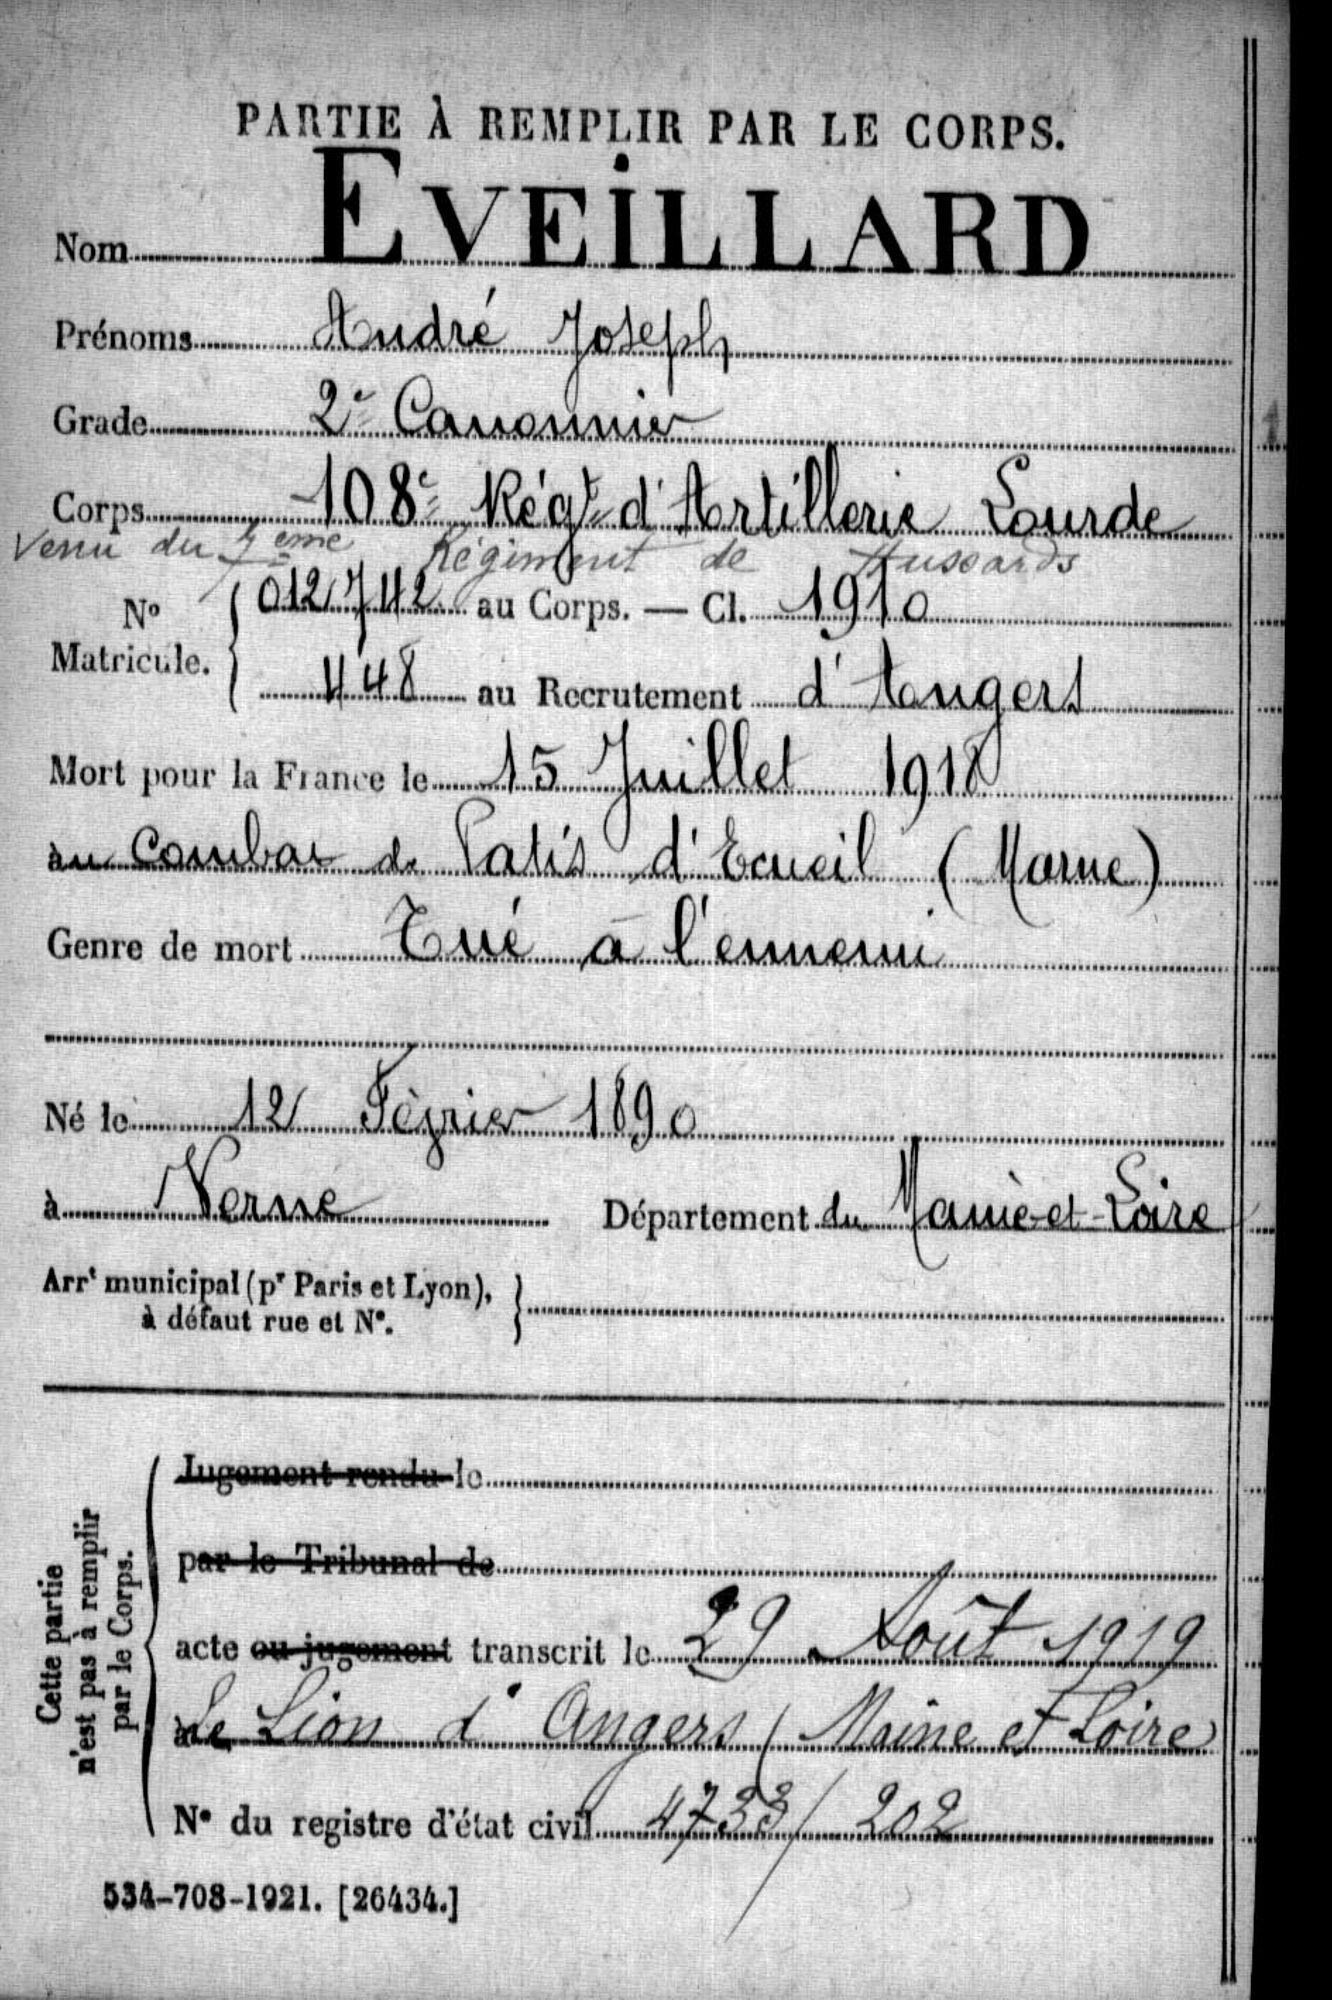 PARTIE À REMPLIR PAR LE CORPS.
Nom EVEILLARD
Prénoms André Joseph
Grade 2e Canonnier
Corps 108e Régt d'Artillerie Lourde
Venu du 7ème Régiment de Hussards
No Matricule. { 012742 au Corps. — Cl. 1910
448 au Recrutement d'Angers
Mort pour la France le 15 Juillet 1918
au Combat de Patis d'Ecueil (Marne)
Genre de mort Tué à l'ennemi
Né le 12 Février 1890
à Verné Département du Maine-et-Loire
Arrt municipal (pr Paris et Lyon), }
à défaut rue et No.
Cette partie
n'est pas à remplir
par le Corps.
Jugement rendu le
par le Tribunal de
acte ou jugement transcrit le 29 Août 1919
à Le Lion d'Angers (Maine et Loire)
No du registre d'état civil 4733/202
534-708-1921. [26434.]